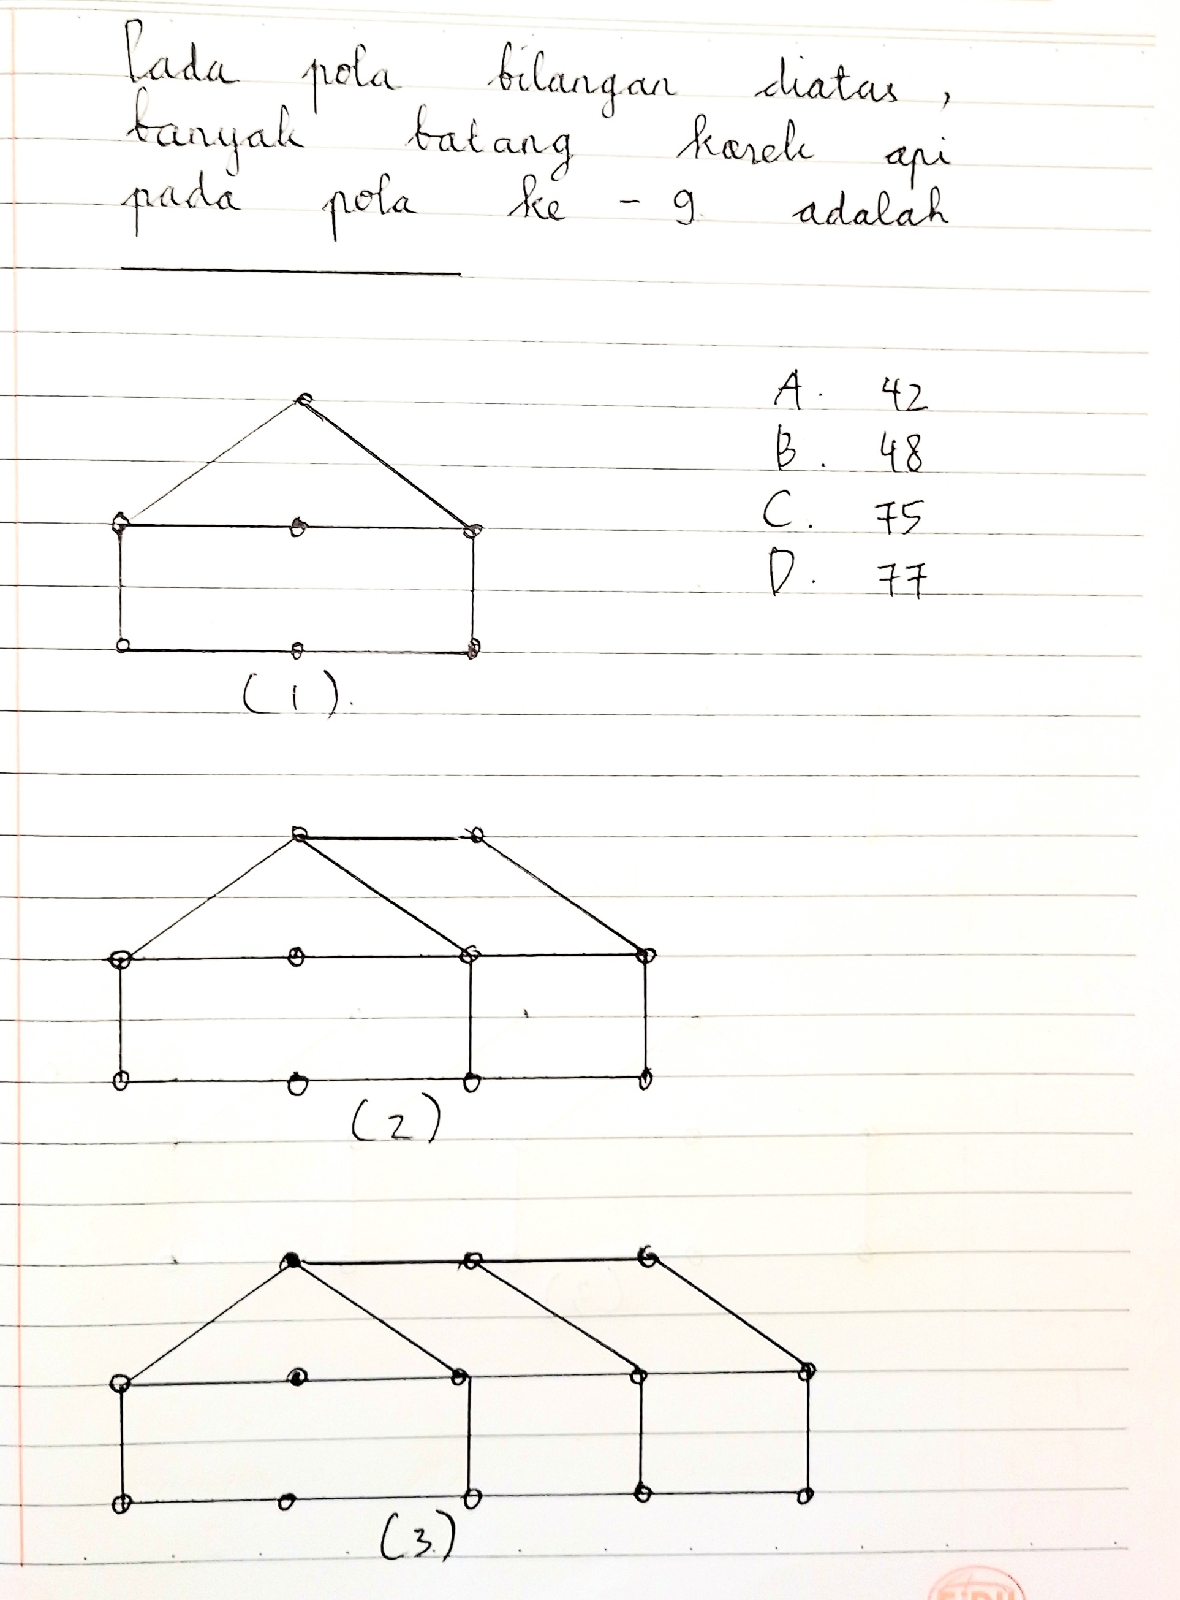 Pada pola bilangan diatas,
banyak batang korek api
pada pola ke - 9 adalah
A. 42
B. 48
C. 75
D. 77
(1).
(2)
(3)